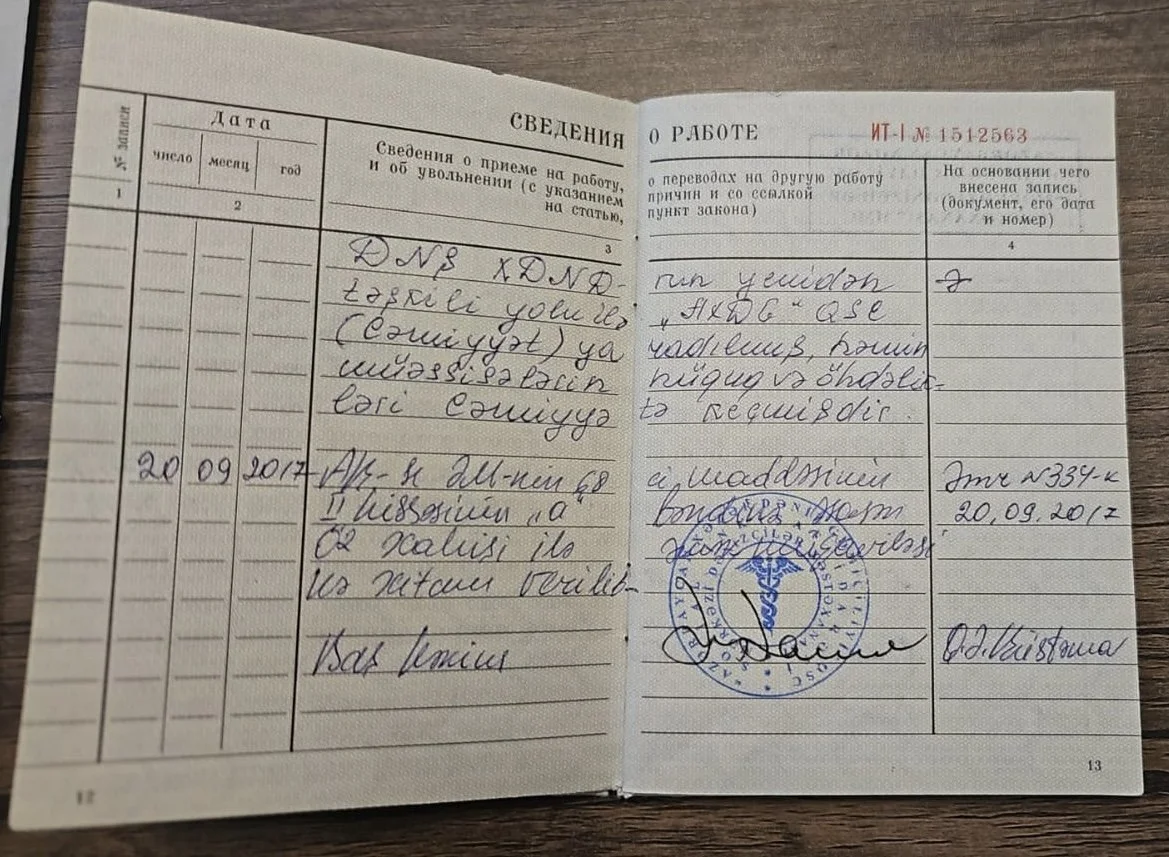 СВЕДЕНИЯ О РАБОТЕ ИТ-I № 1512563
№ записи
Дата
число месяц год
Сведения о приеме на работу, о переводах на другую работу
и об увольнении (с указанием причин и со ссылкой
на статью, пункт закона)
На основании чего
внесена запись
(документ, его дата
и номер)
1 2 3 4
DNŞ XDND- nın yenidən
təşkili yolu ilə „AXDG“ QSC
(Cəmiyyət) ya radılmış, həmin
müəssisələrin hüquq və öhdəlik-
ləri Cəmiyyə tə keçmişdir.
20 09 2017 AR- ƏM-nin 68 ci maddəsinin Əmr N334-k
II hissəsinin „a“ bəndinə 20.09.2017
Öz xahişi ilə
xitam verilib
Baş həkim
12
13